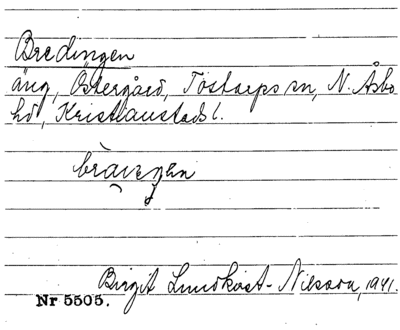 Bredingen
äng, Östergård, Tostarps sn, N. Åsbo
hd, Kristianstads l.
Birgit Lundkvist-Nilsson, 1941.
Nr 5505.